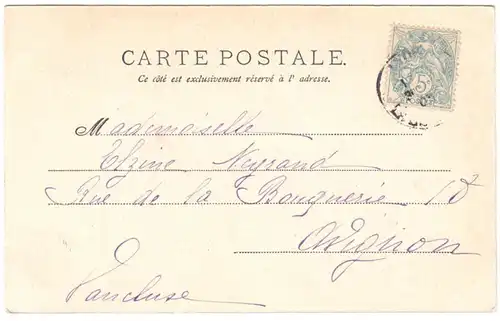 CARTE POSTALE.
Ce côté est exclusivement réservé à l'adresse.
5
Mademoiselle
Elzine Neyrand
Rue de la Bouquerie 12
Avignon
Vaucluse